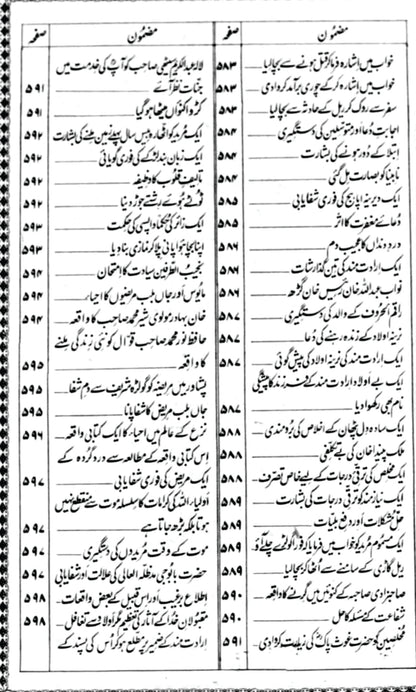 مضمون صفحہ
خواب میں اشارہ فرما کر قتل ہونے سے بچا لیا ۵۸۳
خواب میں اشارہ کر کے چوری برآمد کروا دی ۵۸۳
سفر سے روک کر ریل کے حادثہ سے بچا لیا ۵۸۳
اجابتِ دعا اور متوسلین کی دستگیری ۵۸۴
ابتلا کے دور ہونے کی بشارت
نابینا کو بصارت مل گئی ۵۸۴
ایک دیرینہ اپاہج کی فوری شفایابی ۵۸۵
دعائے مغفرت کا اثر ۵۸۵
دردِ دنداں کا عجیب دم ۵۸۶
ایک ارادت مند کی تین گذارشات
نواب عبداللہ خان رئیس خان گڑھ ۵۸۶
راقم الحروف کے والد کی دستگیری ۵۸۷
نرینہ اولاد کے زندہ رہنے کی دُعا
ایک ارادت مند کی نرینہ اولاد کی پیش گوئی ۵۸۷
ایک بے اولاد ارادت مند کے فرزند کا پیشگی
نام بھی رکھوا دیا ۵۸۷
ایک سادہ دل پٹھان کے اخلاص کی برومندی ۵۸۸
ملک چیندا خان کی بے تکلفی ۵۸۸
ایک مخلص کی ترقی درجات کے لیے خاص تصرف ۵۸۸
ایک نیازمند کو ترقی درجات کی بشارت ۵۸۹
حل مشکلات اور دفع بلیات ۵۸۹
ایک مسموم مُرید کو خواب میں فرمایا کہ فوراً گولڑے چلے آؤ ۵۸۹
ریل گاڑی کے سامنے سے اُٹھا کر بچا لیا ۵۸۹
صاحبزادی صاحبہ کے کنوئیں میں گرنے کا واقعہ ۵۹۰
شفاعت کے مسئلہ کا حل ۵۹۰
مخلصین کو حضرت غوث پاکؓ کی زیارت کروا دی ۵۹۱
مضمون صفحہ
لالہ عبدالکریم سیٹھی صاحب کو آپؓ کی خدمت میں
جنّات نظر آئے ۵۹۱
کڑوا کنواں میٹھا ہو گیا ۵۹۱
ایک مُرید کو اٹھارہ بیس سال پہلے زمین ملنے کی بشارت ۵۹۲
ایک زبان بند لڑکے کی فوری گویائی ۵۹۲
تالیفِ قلوب کا وظیفہ ۵۹۲
ٹوٹے ہوئے رشتے جوڑ دینا ۵۹۲
ایک زائر کی حکماً واپسی کی حکمت ۵۹۳
اپنا بچا ہوا پانی پلا کر نمازی بنا دیا ۵۹۳
نجیب الطرفین سیادت کا امتحان ۵۹۴
مایوس اور جاں بلب مریضوں کا احیاء ۵۹۴
خان بہادر مولوی شیر محمد صاحب کا واقعہ ۵۹۴
حافظ نور محمد صاحب قوّال کو نئی زندگی ملنے
کا واقعہ ۵۹۵
پشاور میں مریضہ کو گولڑہ شریف سے دم شفا ۵۹۵
جاں بلب مریض کا شفا پانا ۵۹۵
نزع کے عالم میں احیاء کا ایک کتابی واقعہ ۵۹۶
اس کتابی واقعہ کے مطالعہ سے دردِ گردہ کے
ایک مریض کی فوری شفایابی ۵۹۷
اولیاء اللہ کی کرامات کا سلسلہ موت سے منقطع نہیں
ہوتا بلکہ بڑھ جاتا ہے ۵۹۷
موت کے وقت مُریدوں کی دستگیری ۵۹۷
حضرت بابوجی مدظلہ العالی کی علالت اور شفایابی ۵۹۷
اطلاع برغیب اور اس قبیل کے بعض واقعات ۵۹۸
مقبولانِ خدا کے آثار کی تعظیم کراؤ اسے تغافل ۵۹۸
ارادت مند کے ضمیر پر مطلع ہو کر اُس کی پسند کے